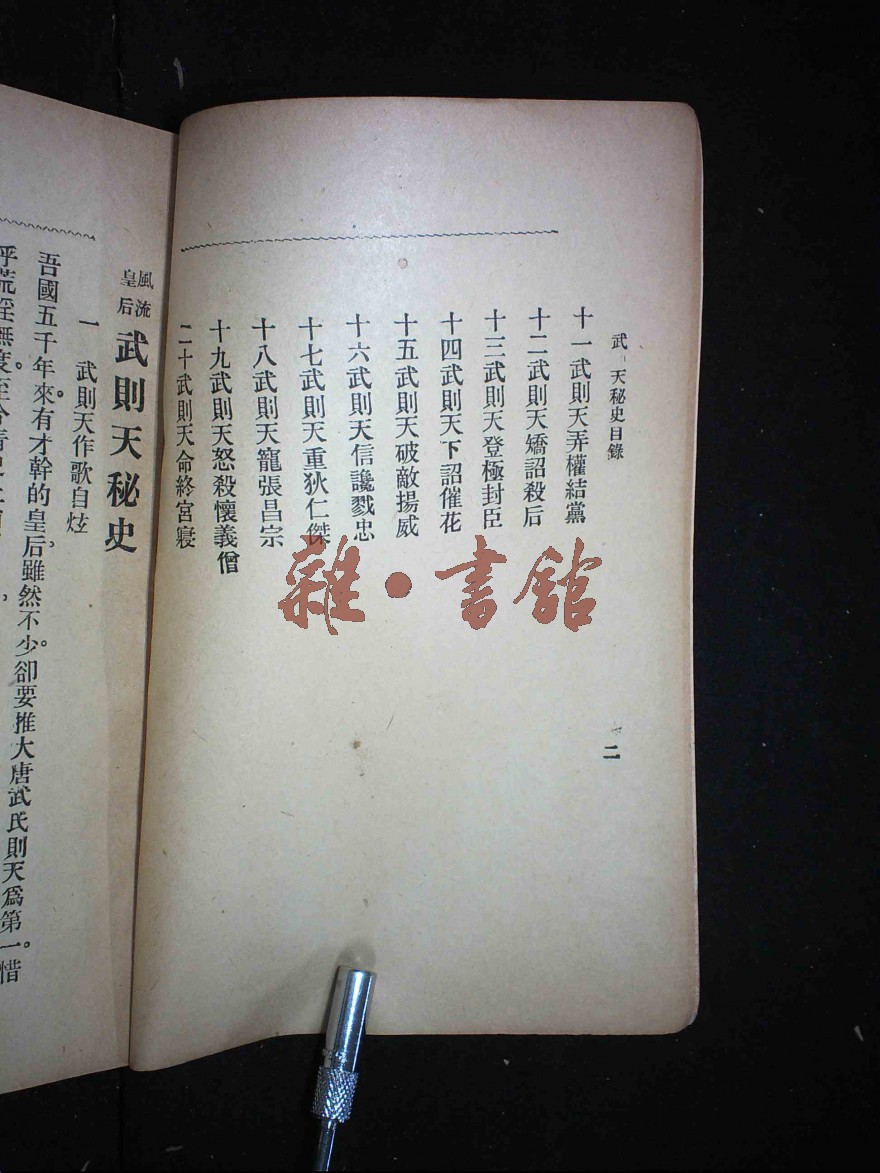 武 天秘史目錄
十一武則天弄權結黨
十二武則天矯詔殺后
十三武則天登極封臣
十四武則天下詔催花
十五武則天破敵揚威
十六武則天信讒戮忠
十七武則天重狄仁傑
十八武則天寵張昌宗
十九武則天怒殺懷義僧
二十武則天命終宮寢
二
雜·書館
風流
皇后
武則天秘史
一 武則天作歌自炫
吾國五千年來有才幹的皇后，雖然不少。卻要推大唐武氏則天爲第一。惜
乎荒淫無度。至今